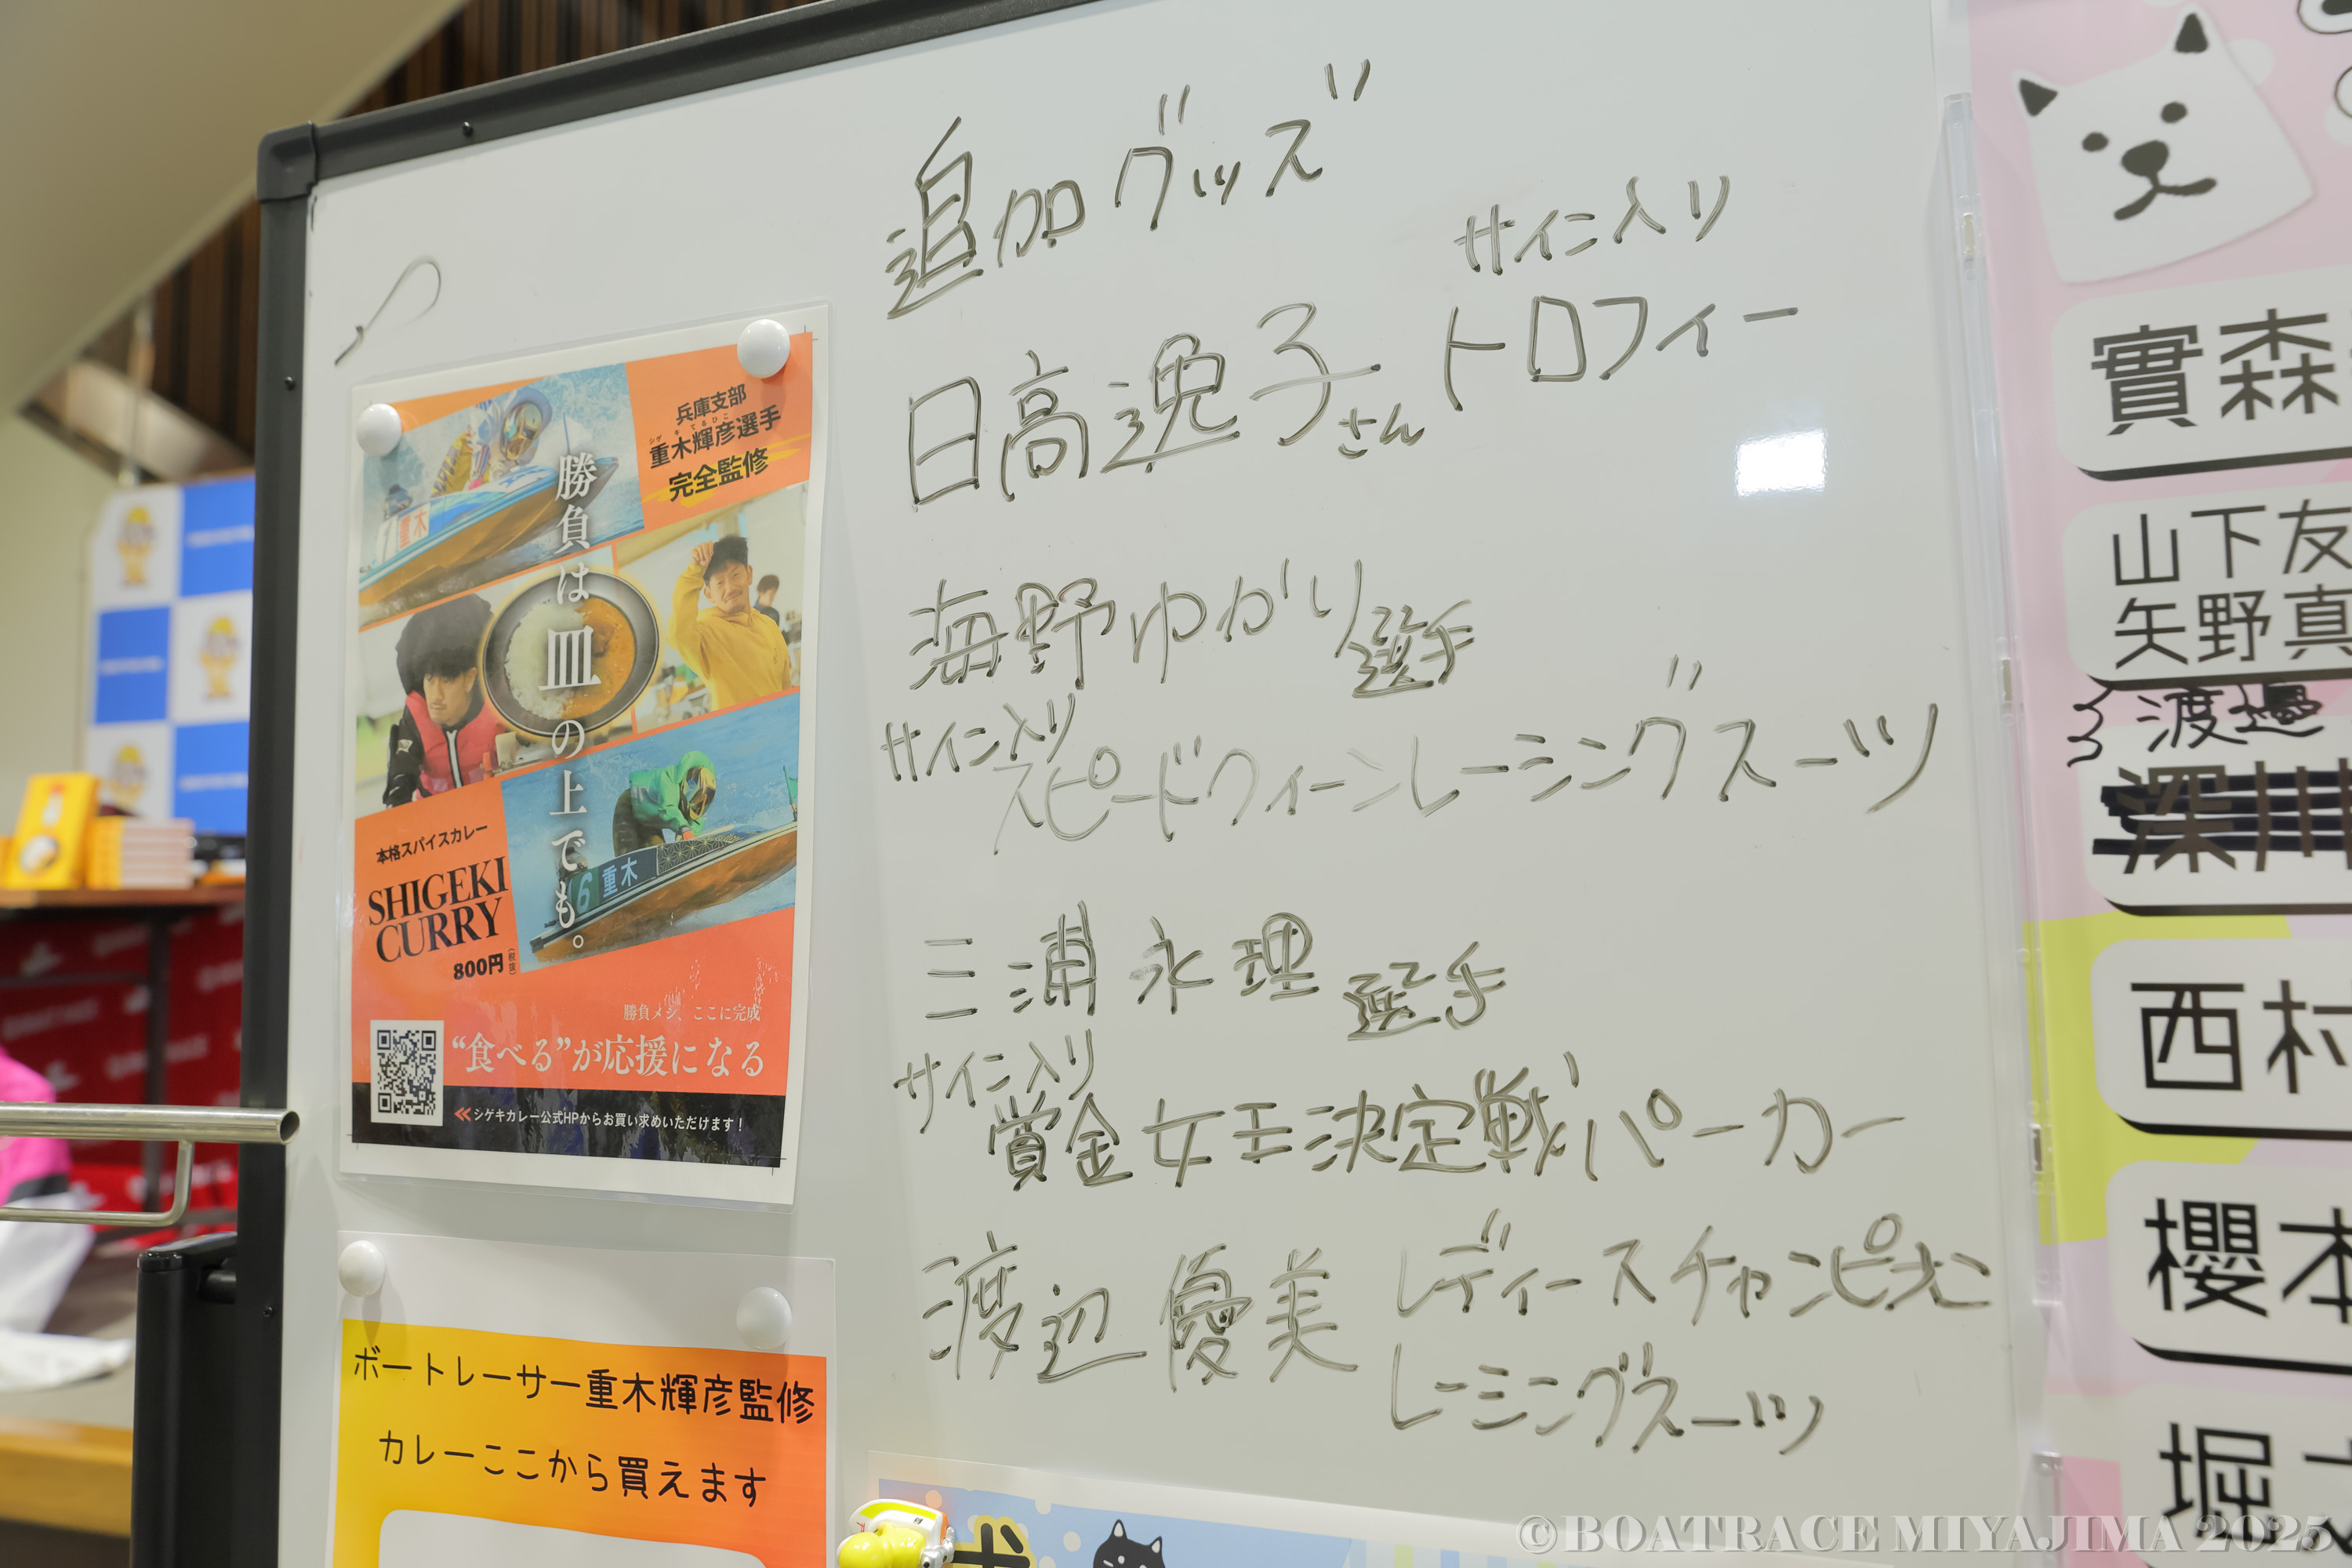 追加グッズ
サイン入り
日高逸子さん トロフィー
海野ゆかり選手
サイン入り
スピードクィーンレーシングスーツ
三浦永理選手
サイン入り
賞金女王決定戦パーカー
渡辺優美 レディースチャンピオン
レーシングスーツ
兵庫支部
シゲ キ てるひこ
重木輝彦選手
完全監修
勝負は皿の上でも。
1 重木
6 重木
本格スパイスカレー
SHIGEKI
CURRY
800円(税抜)
勝負メシ、ここに完成
“食べる”が応援になる
≪シゲキカレー公式HPからお買い求めいただけます！
ボートレーサー重木輝彦監修
カレーここから買えます
實森
山下友
矢野真
渡邉
深川
西村
櫻本
堀
©BOATRACE MIYAJIMA 2025